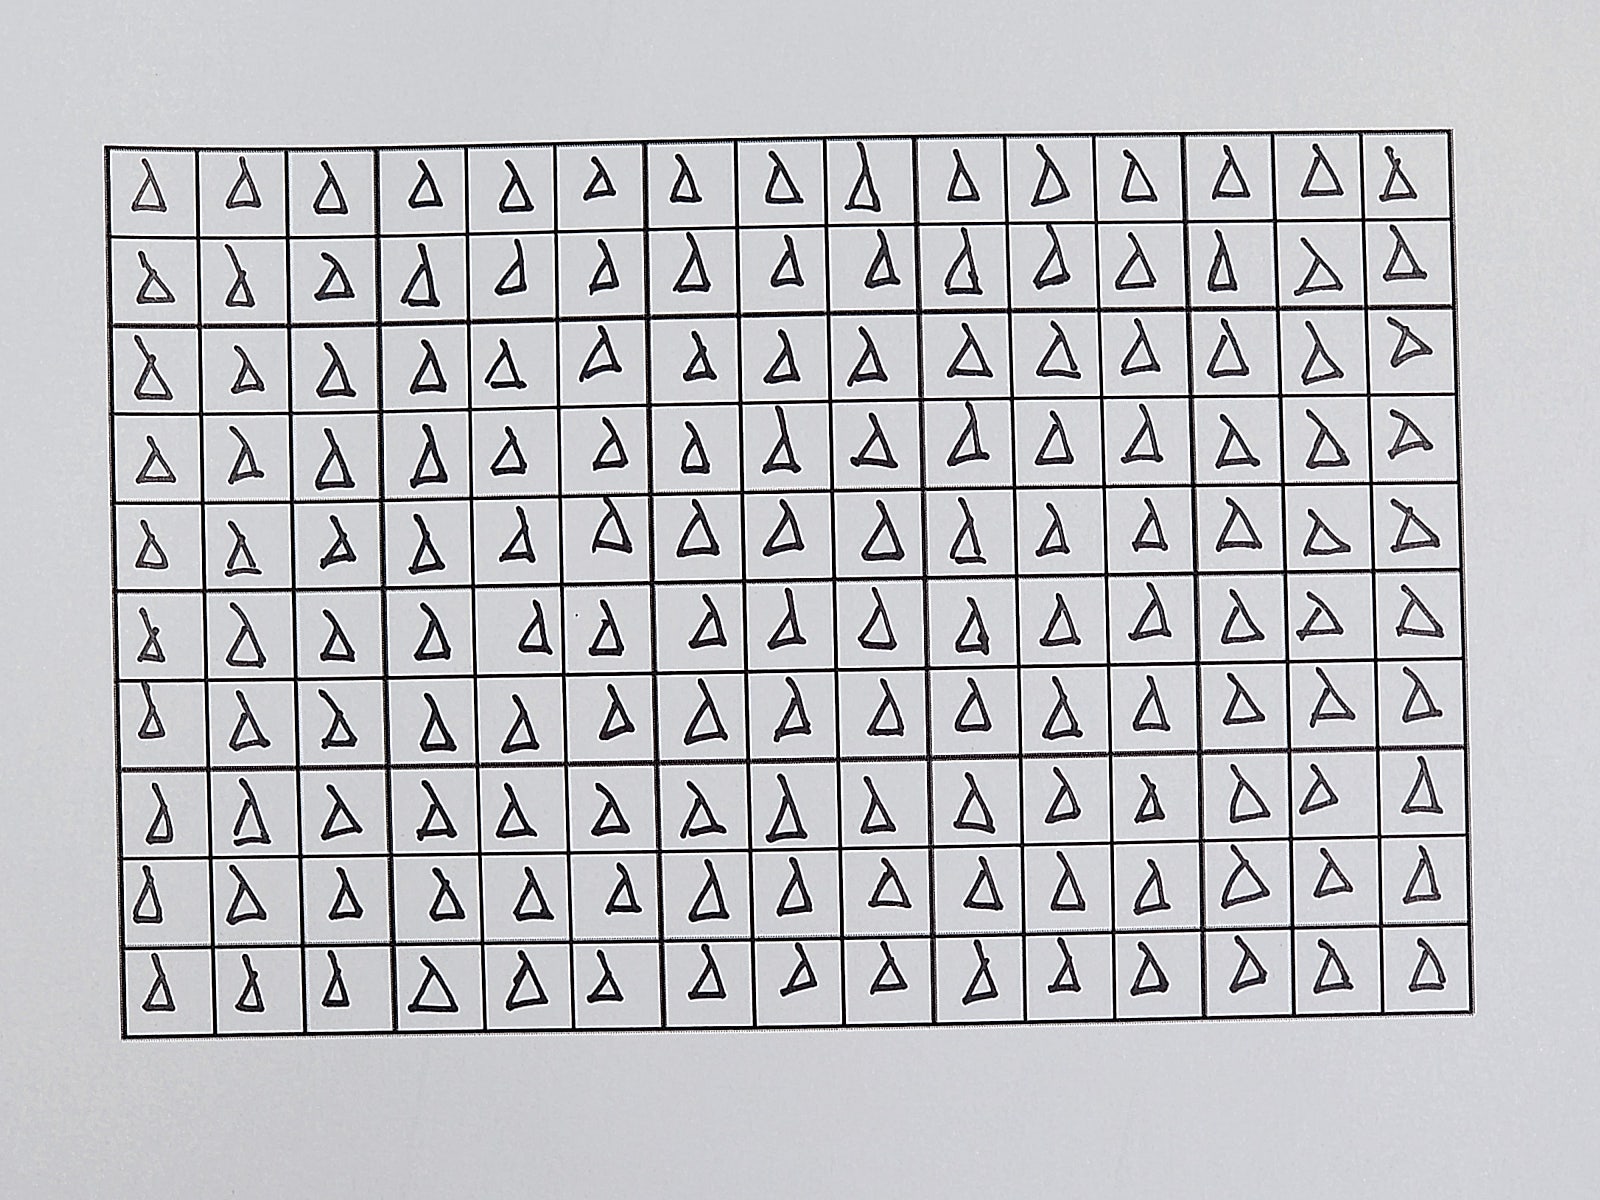 Δ Δ Δ Δ Δ Δ Δ Δ Δ Δ Δ Δ Δ Δ Δ
Δ Δ Δ Δ Δ Δ Δ Δ Δ Δ Δ Δ Δ Δ Δ
Δ Δ Δ Δ Δ Δ Δ Δ Δ Δ Δ Δ Δ Δ Δ
Δ Δ Δ Δ Δ Δ Δ Δ Δ Δ Δ Δ Δ Δ Δ
Δ Δ Δ Δ Δ Δ Δ Δ Δ Δ Δ Δ Δ Δ Δ
Δ Δ Δ Δ Δ Δ Δ Δ Δ Δ Δ Δ Δ Δ Δ
Δ Δ Δ Δ Δ Δ Δ Δ Δ Δ Δ Δ Δ Δ Δ
Δ Δ Δ Δ Δ Δ Δ Δ Δ Δ Δ Δ Δ Δ Δ
Δ Δ Δ Δ Δ Δ Δ Δ Δ Δ Δ Δ Δ Δ Δ
Δ Δ Δ Δ Δ Δ Δ Δ Δ Δ Δ Δ Δ Δ Δ